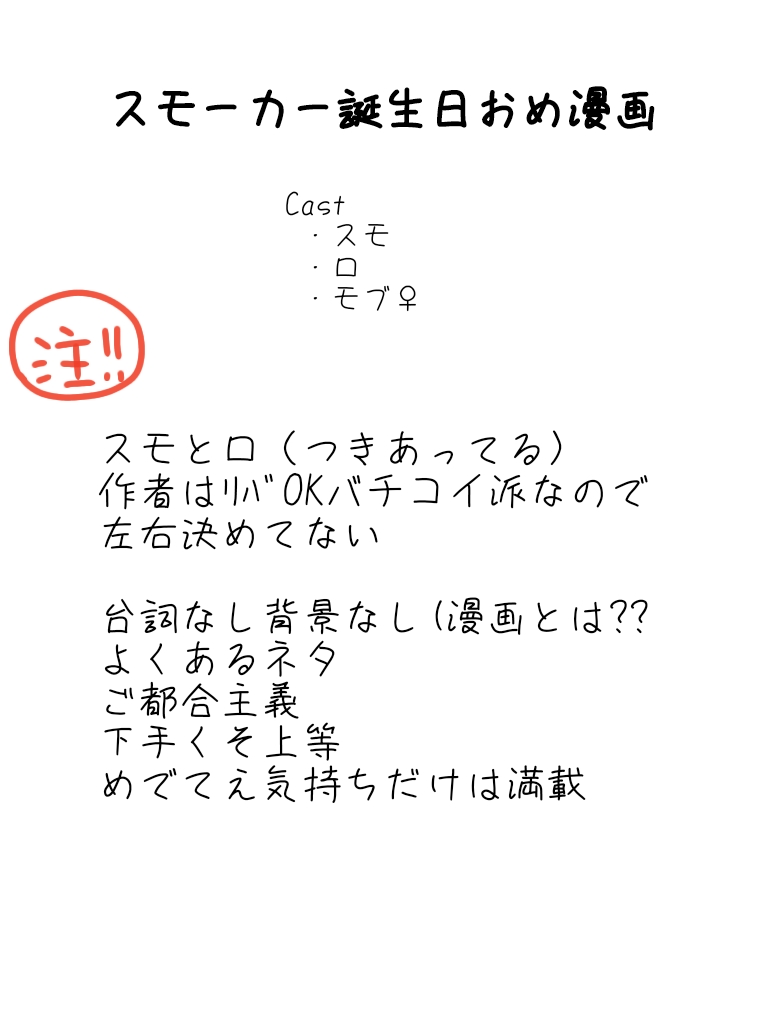 スモーカー誕生日おめ漫画
Cast
・スモ
・ロ
・モブ♀
注!!
スモとロ（つきあってる）
作者はﾘﾊﾞOKバチコイ派なので
左右決めてない
台詞なし背景なし(漫画とは??
よくあるネタ
ご都合主義
下手くそ上等
めでてえ気持ちだけは満載